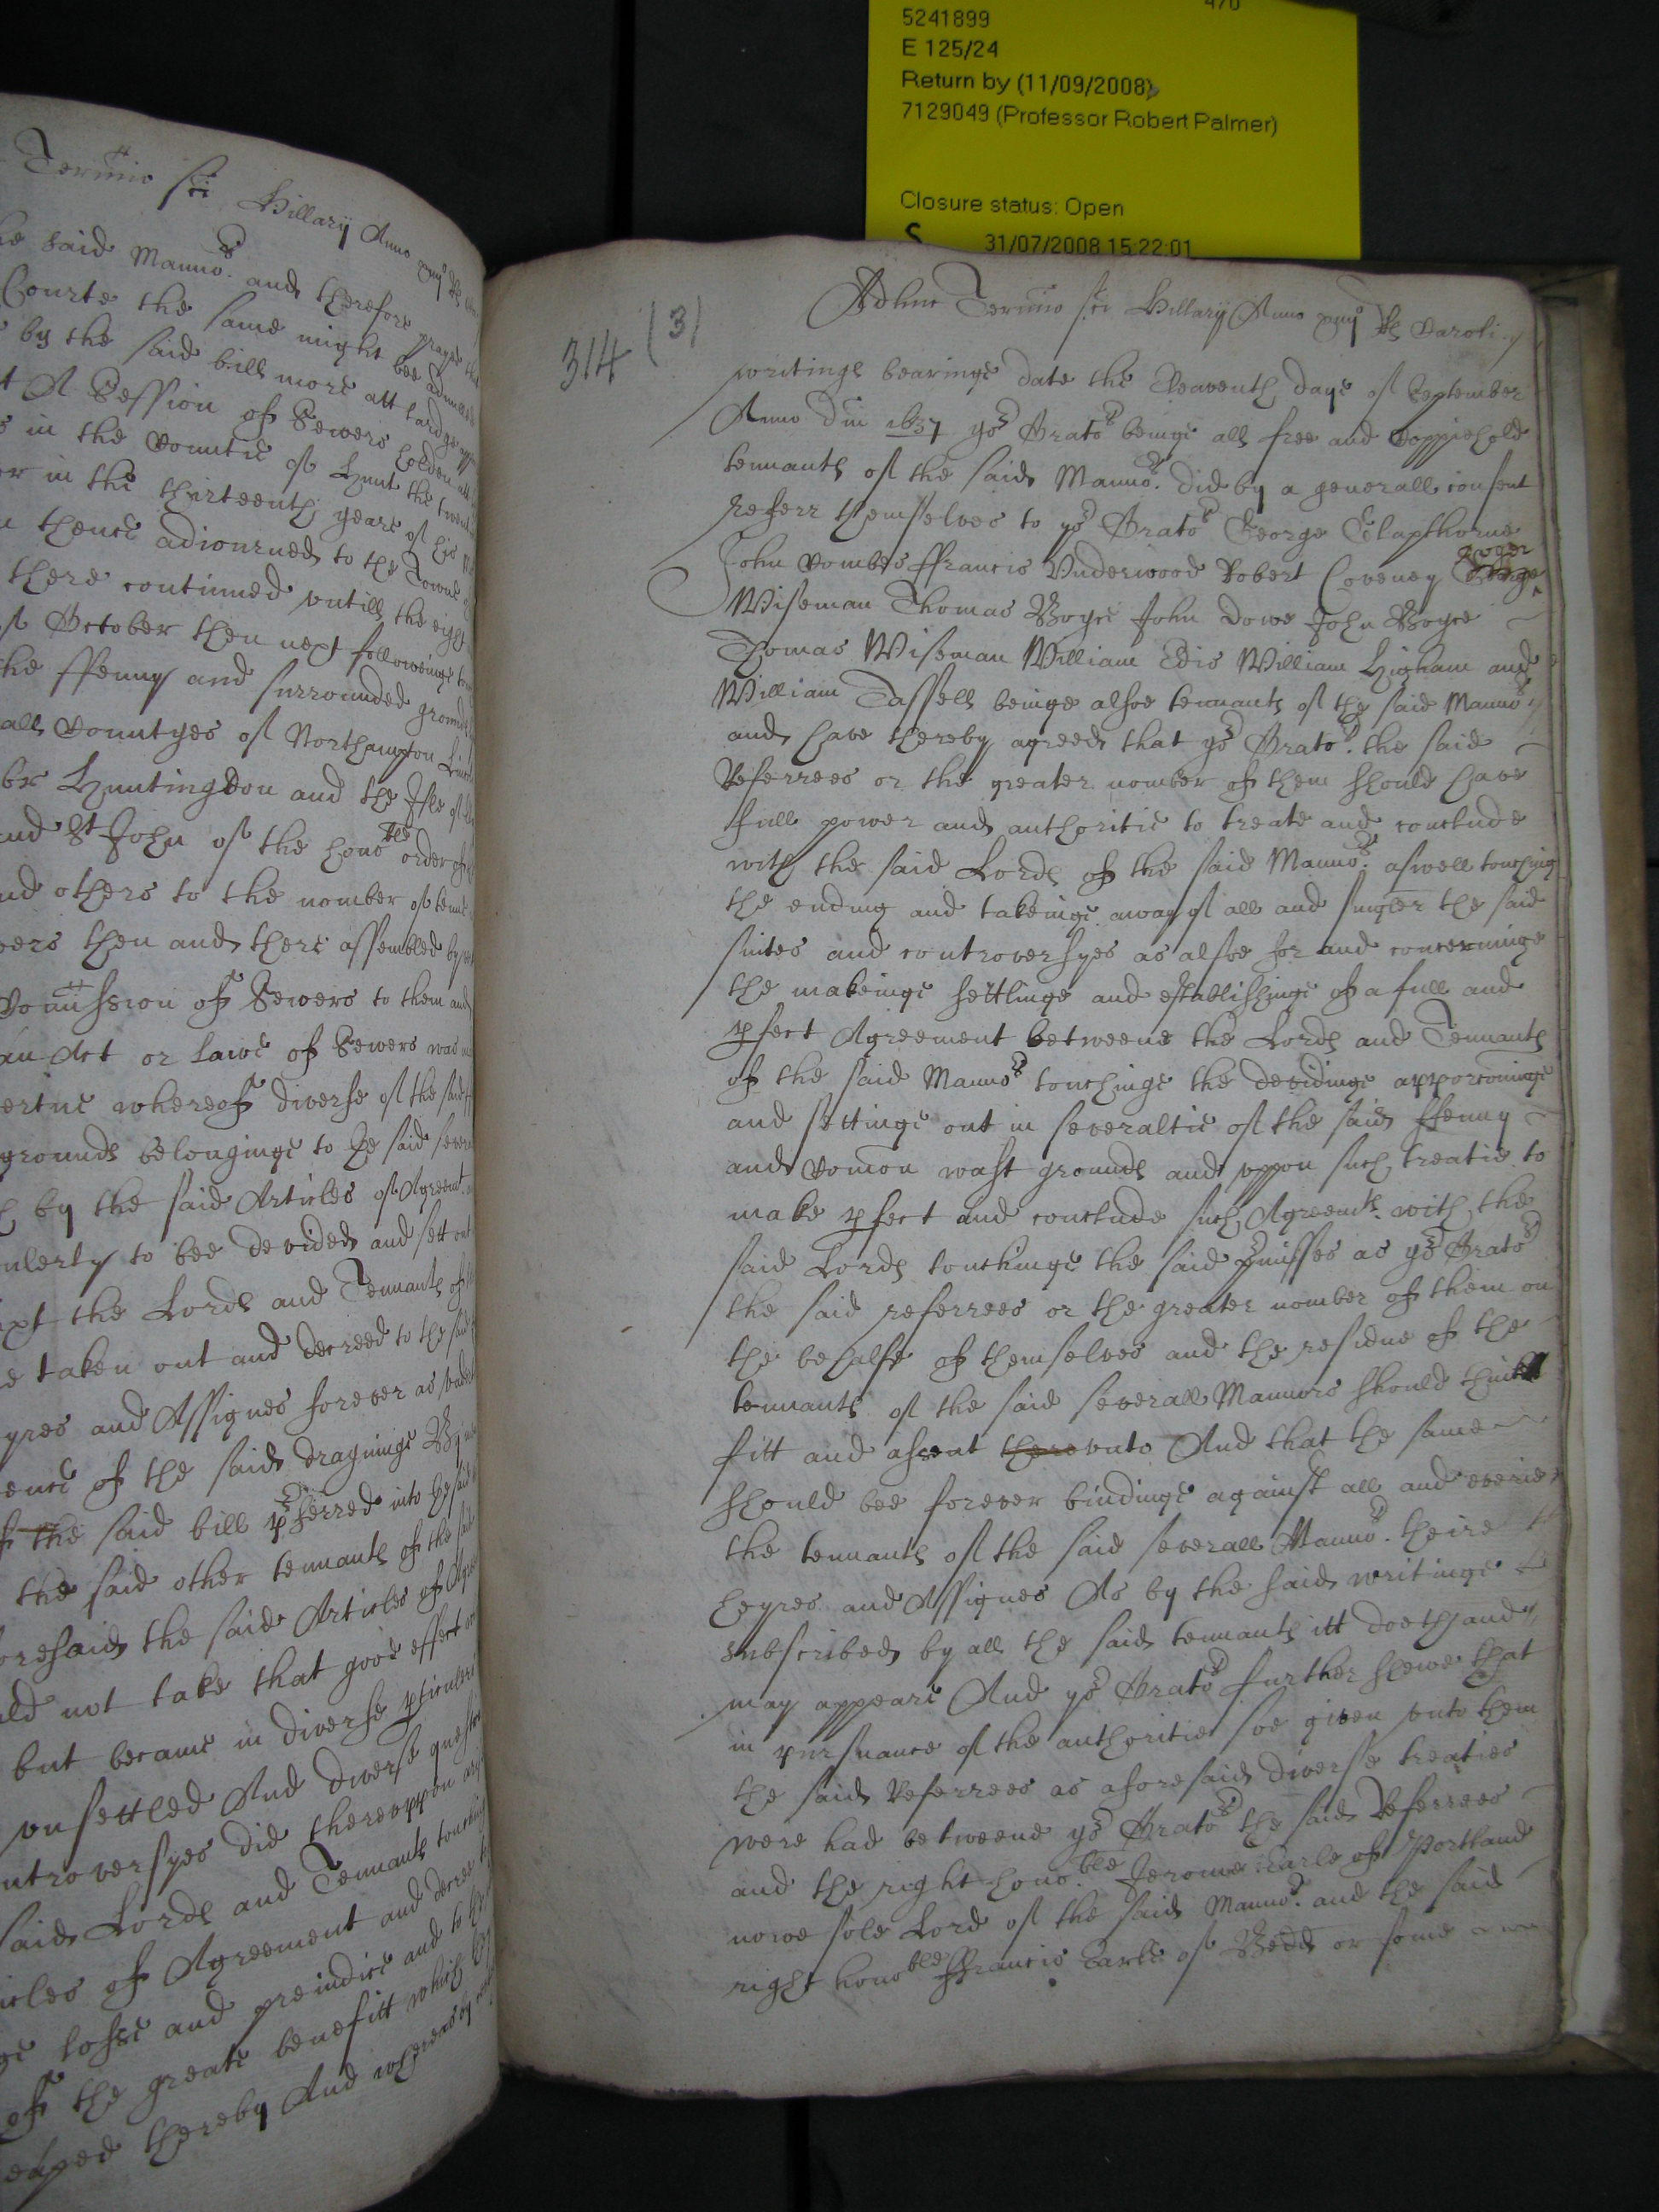 470
5241899
E 125/24
Return by (11/09/2008)
7129049 (Professor Robert Palmer)
Closure status: Open
S 31/07/2008 15:22:01
Termino sci Hillarij Anno
he said Manno.rs and therefore praye
Courte the same might bee
by the said bill more att lardge
t A Session of Sewers holden att
s in the Countie of Hunt the
er in the thirteenth yeare of his
thence adiourned to the Towne
there continued vntill the eight
of October then next followeinge
he ffenny and surrounded ground
all Countyes of Northampton
Huntingdon and the Isle of
and St John of the hono.ble order of
nd others to the nomber of
wers then and there assembled by
Comission of Sewers to them and
an Act or Lawe of Sewers was
ertue whereof diverse of the said
grounds belonginge to the said
h by the said Articles of Agreemt.
ulerly to bee devided and sett out
ixt the Lords and Tennants of
e taken out and decreed to the said
yres and Assignes forever as
ence of the said drayninge
f the said bill pferred into the said
the said other tennants of the said
oresaid the said Articles of
ld not take that good effect
but became in diverse pticulers
vnsettled And diverse
ntroversyes did thereuppon
said Lords and Tennants touching
icles of Agreement and decree
losse and preiudice and to the
of the greate benefitt which
thereby And whereas by
314 (3)
Adhuc Termino sci Hillarij Anno xiiijo Rs Caroli
writinge bearinge date the Eleaventh daye of September
Anno Dni 1637 yor Orators beinge all free and Coppiehold
tennants of the said Manno.rs did by a generall consent
referr themselves to yor Orators George Glapthorne
John Combes ffrancis Vnderwood Robert Coveney Roger
Wiseman Thomas Boyce John Dowe John Boyce
Thomas Wiseman William Edis William Higham and
William Tassell beinge alsoe tennants of the said Mannors
and have thereby agreed that yor Orators. the said
Referrees or the greater nomber of them should have
full power and authoritie to treate and conclude
with the said Lords of the said Manno.rs aswell touching
the ending and takeinge away of all and singler the said
suites and controversyes as alsoe for and concerninge
the makeinge settlinge and establishinge of a full and
pfect Agreement betweene the Lords and Tennants
of the said Mannors touchinge the devidinge apporconinge
and settinge out in severaltie of the said ffenny
and Comon wast grounds and vppon such treatie to
make pfect and conclude such Agreemts. with the
said Lords touchinge the said pmisses as yor Orators
the said referrees or the greater nomber of them on
the behalfe of themselves and the residue of the
tennants of the said severall Mannors should thinke
fitt and assent there vnto And that the same
should bee forever bindinge against all and everie
the tennants of the said severall Manno.rs theire
heyres and Assignes As by the said writinge
subscribed by all the said tennants itt doeth and
may appeare And yor Orators further shewe that
in pursuance of the authoritie soe given vnto them
the said Referrees as aforesaid diverse treaties
were had betweene yor Orators the said Referrees
and the right hono.ble Jerome Earle of Portland
nowe sole Lord of the said Manno.rs and the said
right honoble ffrancis Earle of Bedd or some